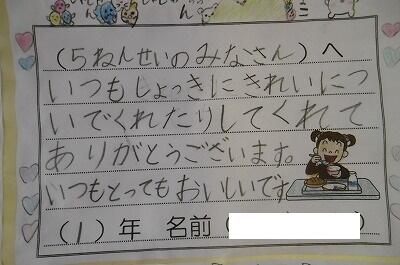 (5ねんせいのみなさん)へ
いつもしょっきにきれいにつ
いでくれたりしてくれて
ありがとうございます。
いつもとってもおいしいです
(1)年 名前( )